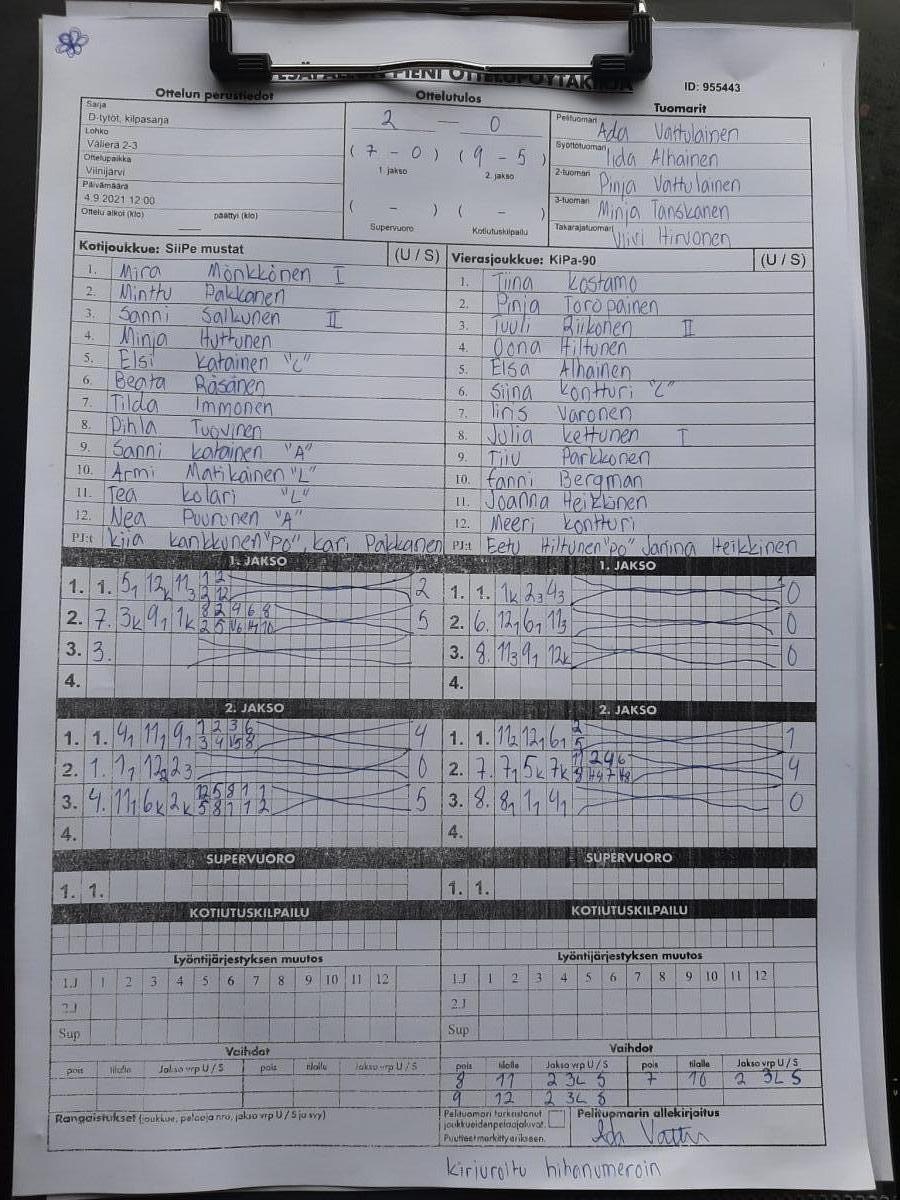 PIENI OTTELUPÖYTÄKIRJA
ID: 955443
Ottelun perustiedot
Sarja
D-tytöt, kilpasarja
Lohko
Välierä 2-3
Ottelupaikka
Viinijärvi
Päivämäärä
4.9.2021 12:00
Ottelu alkoi (klo) päättyi (klo)
Ottelutulos
2 — 0
( 7 - 0 ) ( 9 - 5 )
1. jakso 2. jakso
( - ) ( - )
Supervuoro Kotiutuskilpailu
Tuomarit
Pelituomari Ada Vattulainen
Syöttötuomari Iida Alhainen
2-tuomari Pinja Vattulainen
3-tuomari Minja Tanskanen
Takarajatuomari Viivi Hirvonen
Kotijoukkue: SiiPe mustat (U / S)
1. Mira Mönkkönen I
2. Minttu Pakkanen
3. Sanni Salkunen II
4. Minja Huttunen
5. Elsi Katainen "C"
6. Beata Räsänen
7. Tilda Immonen
8. Pihla Tuovinen
9. Sanni Katainen "A"
10. Armi Matikainen "L"
11. Tea Kolari "L"
12. Nea Puurunen "A"
PJ:t Kiia Kankkunen "PO", Kari Pakkanen
Vierasjoukkue: KiPa-90 (U / S)
1. Tiina Kostamo
2. Pinja Toropainen
3. Tuuli Riikonen II
4. Oona Hiltunen
5. Elsa Alhainen
6. Siina Kontturi "C"
7. Iiris Varonen
8. Julia Kettunen I
9. Tiiu Parkkonen
10. Fanni Bergman
11. Joanna Heikkinen
12. Meeri Kontturi
PJ:t Eetu Hiltunen "PO" Janina Heikkinen
1. JAKSO
1. 1. 5₁ 12k 11₃ 2
2. 7. 3k 9₁ 1k 5
3. 3.
4.
1. JAKSO
1. 1. 1k 2₃ 4₃ 0
2. 6. 12₁ 6₁ 11₃ 0
3. 8. 11₃ 9₁ 12k 0
4.
2. JAKSO
1. 1. 4₁ 11₁ 9₁ 4
2. 1. 1₁ 12₂ 2₃ 0
3. 4. 11₁ 6k 2k 5
4.
2. JAKSO
1. 1. 11₂ 12₁ 6₁ 1
2. 7. 7₁ 5k 7k 4
3. 8. 8₁ 1₁ 4₁ 0
4.
SUPERVUORO
1. 1.
SUPERVUORO
1. 1.
KOTIUTUSKILPAILU
KOTIUTUSKILPAILU
Lyöntijärjestyksen muutos
1.J 1 2 3 4 5 6 7 8 9 10 11 12
2.J
Sup
Lyöntijärjestyksen muutos
1.J 1 2 3 4 5 6 7 8 9 10 11 12
2.J
Sup
Vaihdot
pois tilalle Jakso vrp U / S pois tilalle Jakso vrp U / S
Vaihdot
pois tilalle Jakso vrp U / S pois tilalle Jakso vrp U / S
8 11 2 3L S 7 10 2 3L S
9 12 2 3L S
Rangaistukset (joukkue, pelaaja nro, jakso vrp U / S ja syy)
Pelituomari tarkastanut
joukkueiden pelaajaluvat.
Puutteet merkitty erikseen.
Pelituomarin allekirjoitus
Ada Vattu
kirjuroitu hihanumeroin